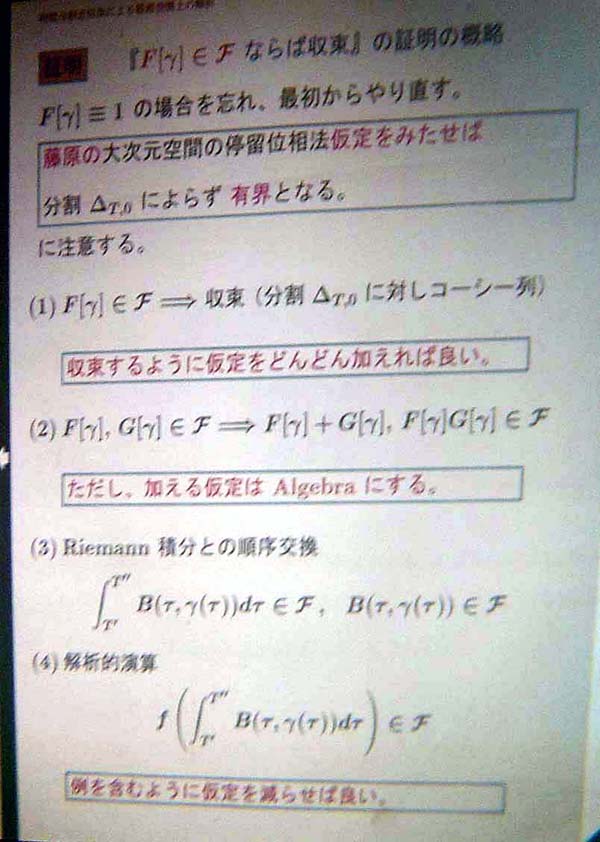 時間分割近似法による経路空間上の解析
証明 『F[γ] ∈ 𝓕 ならば収束』の証明の概略
F[γ] ≡ 1 の場合を忘れ、最初からやり直す。
藤原の大次元空間の停留位相法仮定をみたせば
分割 Δ_{T,0} によらず 有界となる。
に注意する。
(1) F[γ] ∈ 𝓕 ⟹ 収束 (分割 Δ_{T,0} に対しコーシー列)
収束するように仮定をどんどん加えれば良い。
(2) F[γ], G[γ] ∈ 𝓕 ⟹ F[γ] + G[γ], F[γ]G[γ] ∈ 𝓕
ただし、加える仮定は Algebra にする。
(3) Riemann 積分との順序交換
∫_{T'}^{T''} B(τ, γ(τ))dτ ∈ 𝓕 , B(τ, γ(τ)) ∈ 𝓕
(4) 解析的演算
f(∫_{T'}^{T''} B(τ, γ(τ))dτ) ∈ 𝓕
例を含むように仮定を減らせば良い。